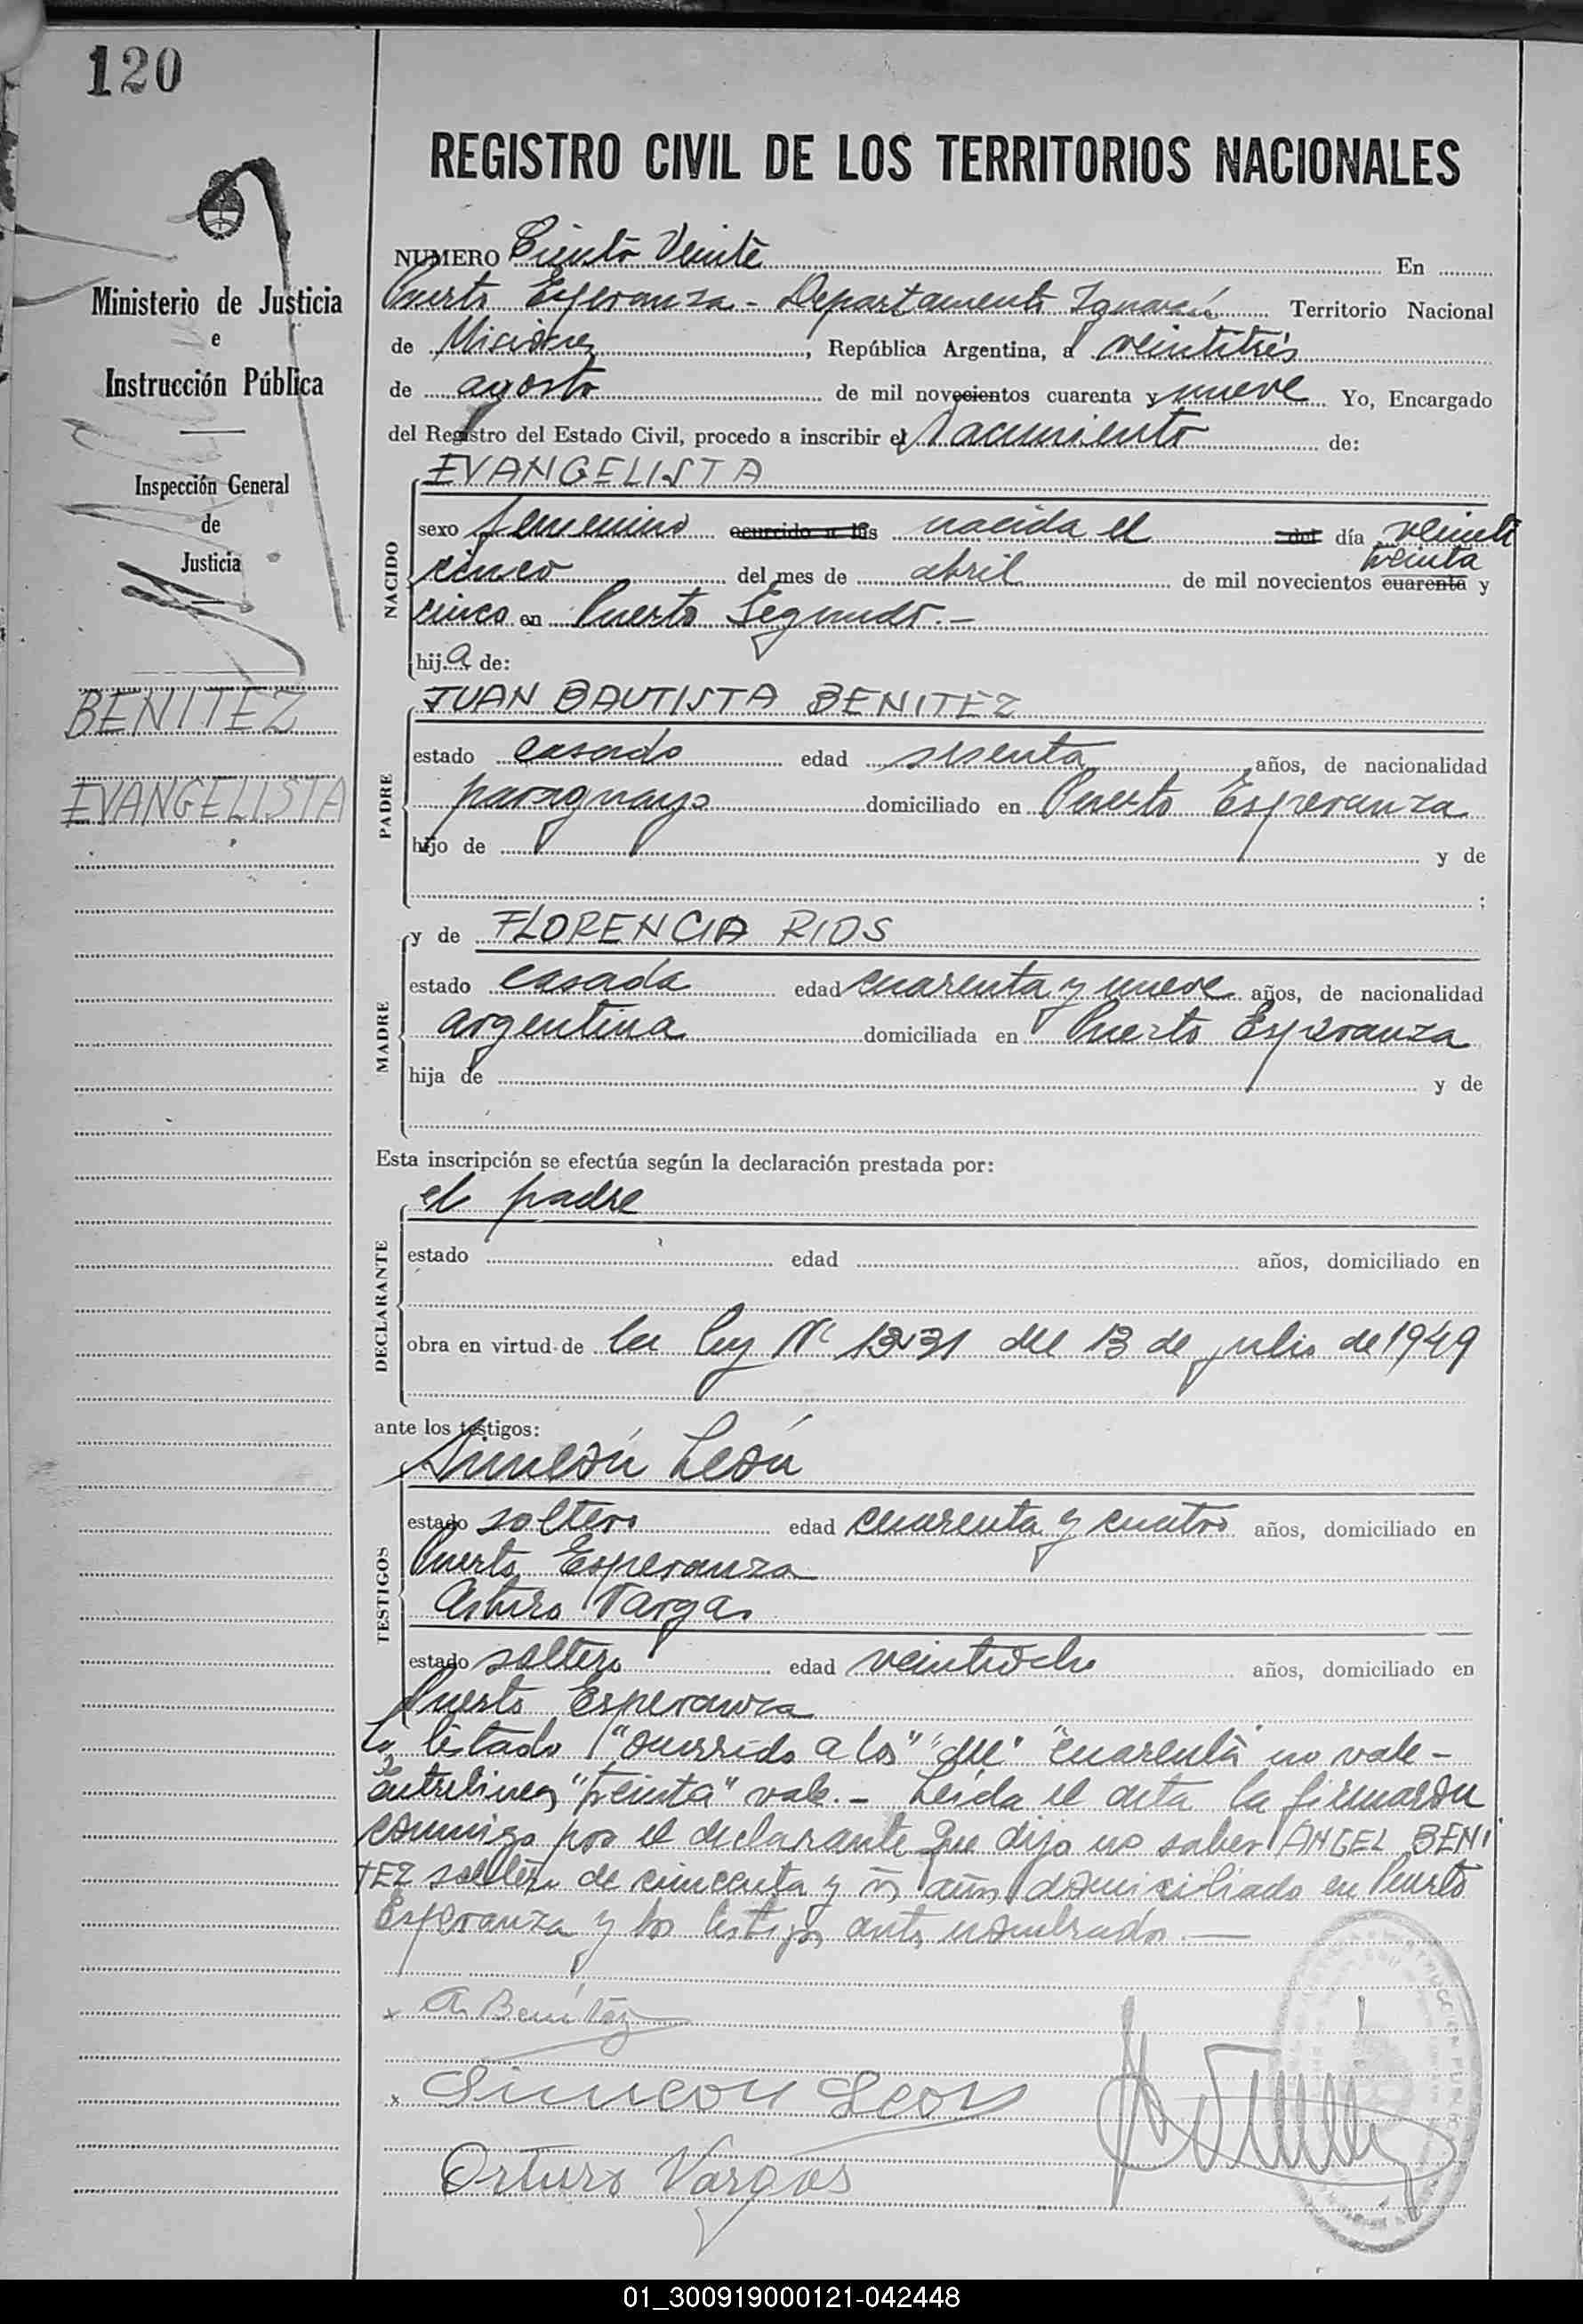 120
REGISTRO CIVIL DE LOS TERRITORIOS NACIONALES
Ministerio de Justicia
e
Instrucción Pública
Inspección General
de
Justicia
BENITEZ
EVANGELISTA
NUMERO Ciento Veinte En
Puerto Esperanza - Departamento Iguazú Territorio Nacional
de Misiones, República Argentina, a veintitrés
de agosto de mil novecientos cuarenta y nueve Yo, Encargado
del Registro del Estado Civil, procedo a inscribir el Nacimiento de:
NACIDO
EVANGELISTA
sexo femenino ocurrido a las nacida el del día veinti
treinta
cinco del mes de abril de mil novecientos cuarenta y
cinco en Puerto Segundo.-
hija de:
PADRE
JUAN BAUTISTA BENITEZ
estado casado edad sesenta años, de nacionalidad
paraguayo domiciliado en Puerto Esperanza
hijo de y de
;
MADRE
y de FLORENCIA RIOS
estado casada edad cuarenta y nueve años, de nacionalidad
argentina domiciliada en Puerto Esperanza
hija de y de
Esta inscripción se efectúa según la declaración prestada por:
DECLARANTE
el padre
estado edad años, domiciliado en
obra en virtud de la ley Nº del 13 de julio de 1949
ante los testigos:
TESTIGOS
Simeón León
estado soltero edad cuarenta y cuatro años, domiciliado en
Puerto Esperanza
Arturo Vargas
estado soltero edad veintiocho años, domiciliado en
Puerto Esperanza
Lo testado "ocurrido a las" "del" "cuarenta" no vale -
entrelineas "treinta" vale.- Leída el acta la firmaron
conmigo por el declarante que dijo no saber ANGEL BENI
TEZ soltero de cincuenta y años domiciliado en Puerto
Esperanza y los testigos antes nombrados.-
x A. Benítez
x Simeon Leon
Arturo Vargas
01_300919000121-042448